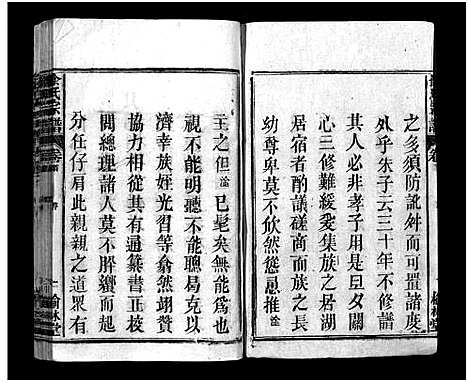 之多須防訛舛而可置諸度
外乎朱子云三十年不修譜
其人必非孝子用是旦夕關
心三修難緩爰集族之居湖
居宿者酌議磋商而族之長
幼尊卑莫不忻然願意推
主之但
已髦矣無能爲也
視不能明聽不能聰曷克以
濟幸族姪光習等翕然翊贊
協力相從其直通纂書正校
間總理諸人莫不胼響而趨
分任仔肩此親親之道眾有
氏宗譜
卷首
榆林堂